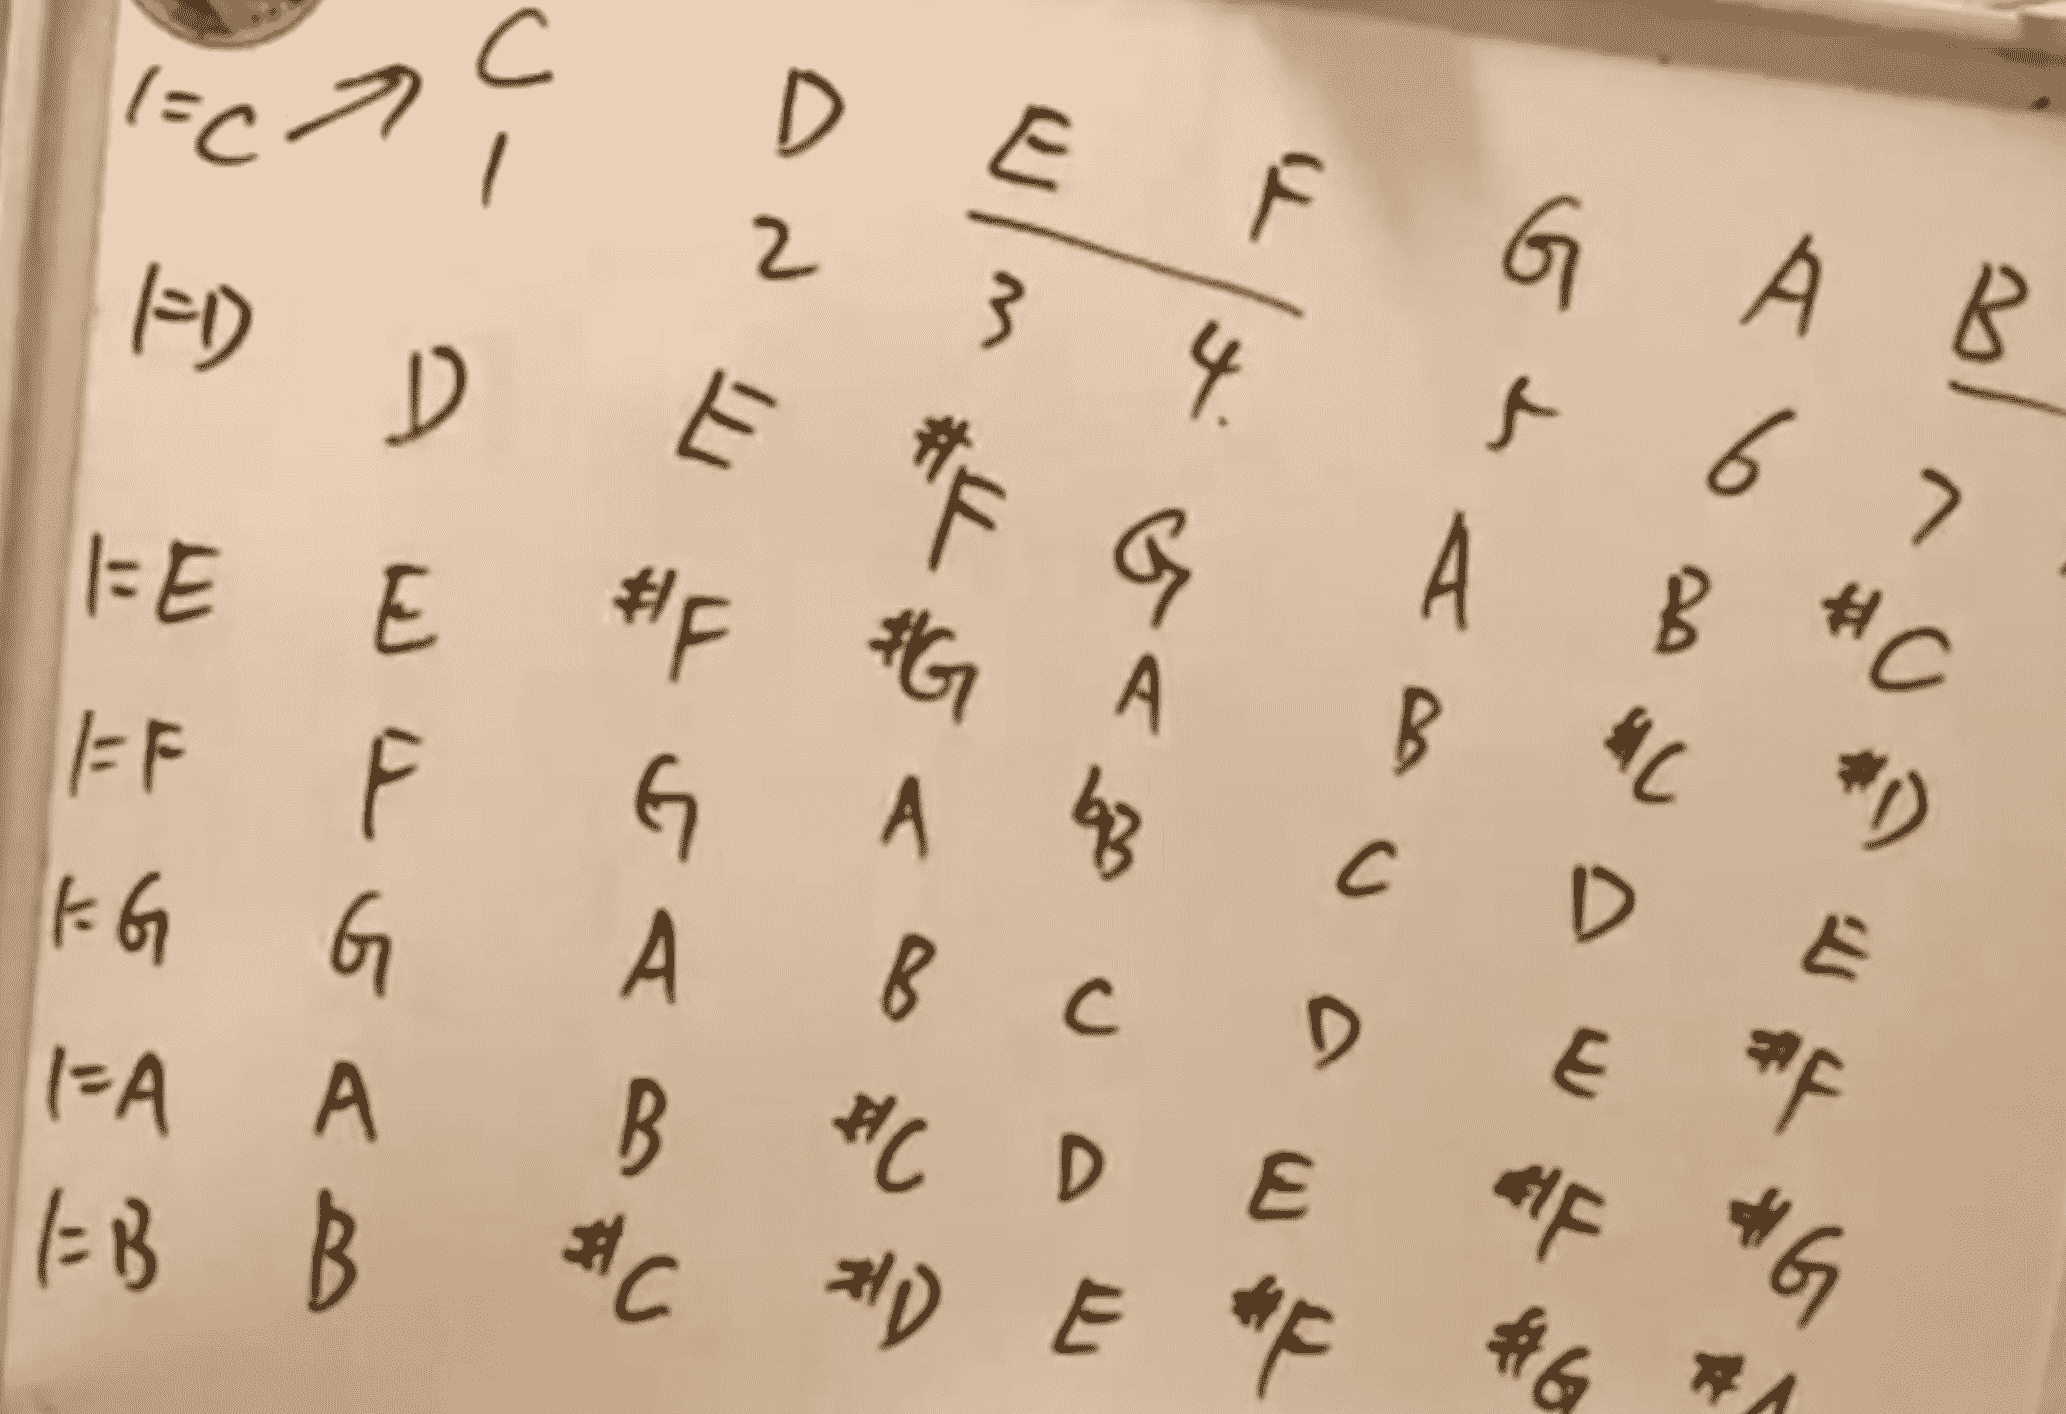 1=C → C D E F G A B
1 2 3 4 5 6 7
1=D D E #F G A B #C
1=E E #F #G A B #C #D
1=F F G A bB C D E
1=G G A B C D E #F
1=A A B #C D E #F #G
1=B B #C #D E #F #G #A